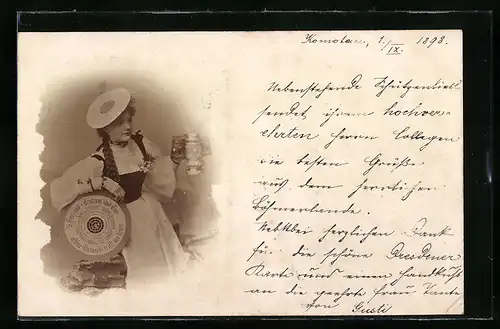 Komotau, 1./IX. 1898.
Nebenstehende Schützenliesl
sendet ihrem hochver-
ehrten Herrn Collegen
die besten Grüße
aus dem herrlichen
Böhmerlande.
Nebstbei herzlichen Dank
für die schöne Dresdener
Karte und einen Handkuß
an die geehrte Frau Tante
von Gusti